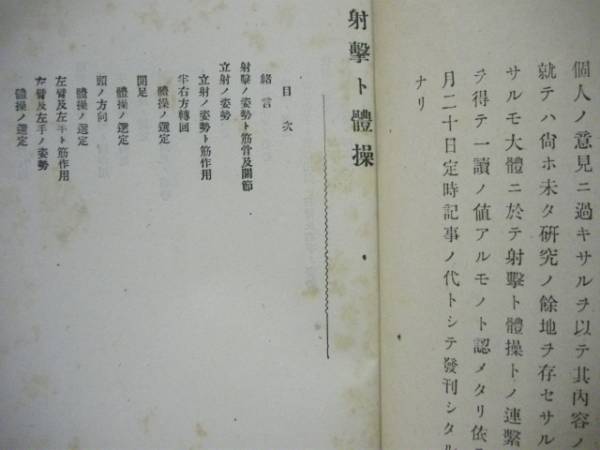 個人ノ意見ニ過キサルヲ以テ其內容ノ
就テハ尙ホ未タ硏究ノ餘地ヲ存セサル
サルモ大體ニ於テ射擊ト體操トノ連繫
ヲ得テ一讀ノ値アルモノト認メタリ依
月二十日定時記事ノ代トシテ發刊シタル
ナリ
射擊ト體操
目次
緖言
射擊ノ姿勢ト筋骨及關節
立射ノ姿勢
立射ノ姿勢ト筋作用
半右方轉回
體操ノ選定
開足
體操ノ選定
頭ノ方向
體操ノ選定
左臂及左手ト筋作用
左臂及左手ノ姿勢
體操ノ選定